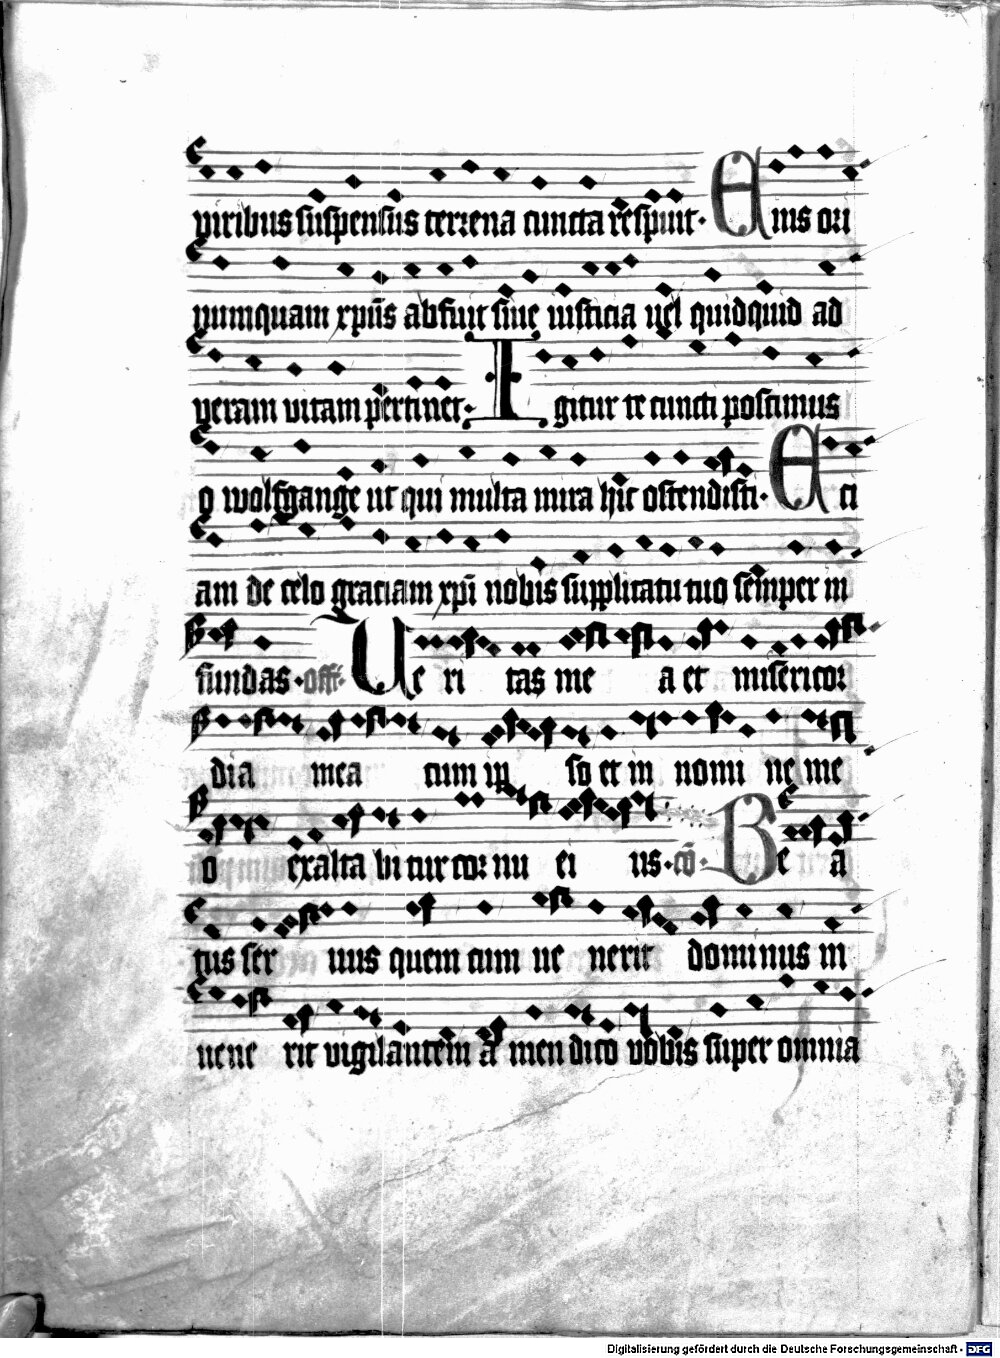 viribus suspensus terrena cuncta respuit. Eius ori
numquam xp̄us abfuit siue iusticia uel quidquid ad
ueram vitam pertinet. Igitur te cuncti poscimus
o wolfgange ut qui multa mira hic ostendisti. Eci
am de celo graciam xp̄i nobis supplicatu tuo semper in
fundas. off. Ue ri tas me a et misericor
dia mea cum ip so et in nomi ne me
o exalta bi tur cor nu ei us. cō. Be a
tus ser uus quem cum ue nerit dominus in
uene rit vigilantem a men dico vobis super omnia
Digitalisierung gefördert durch die Deutsche Forschungsgemeinschaft - DFG